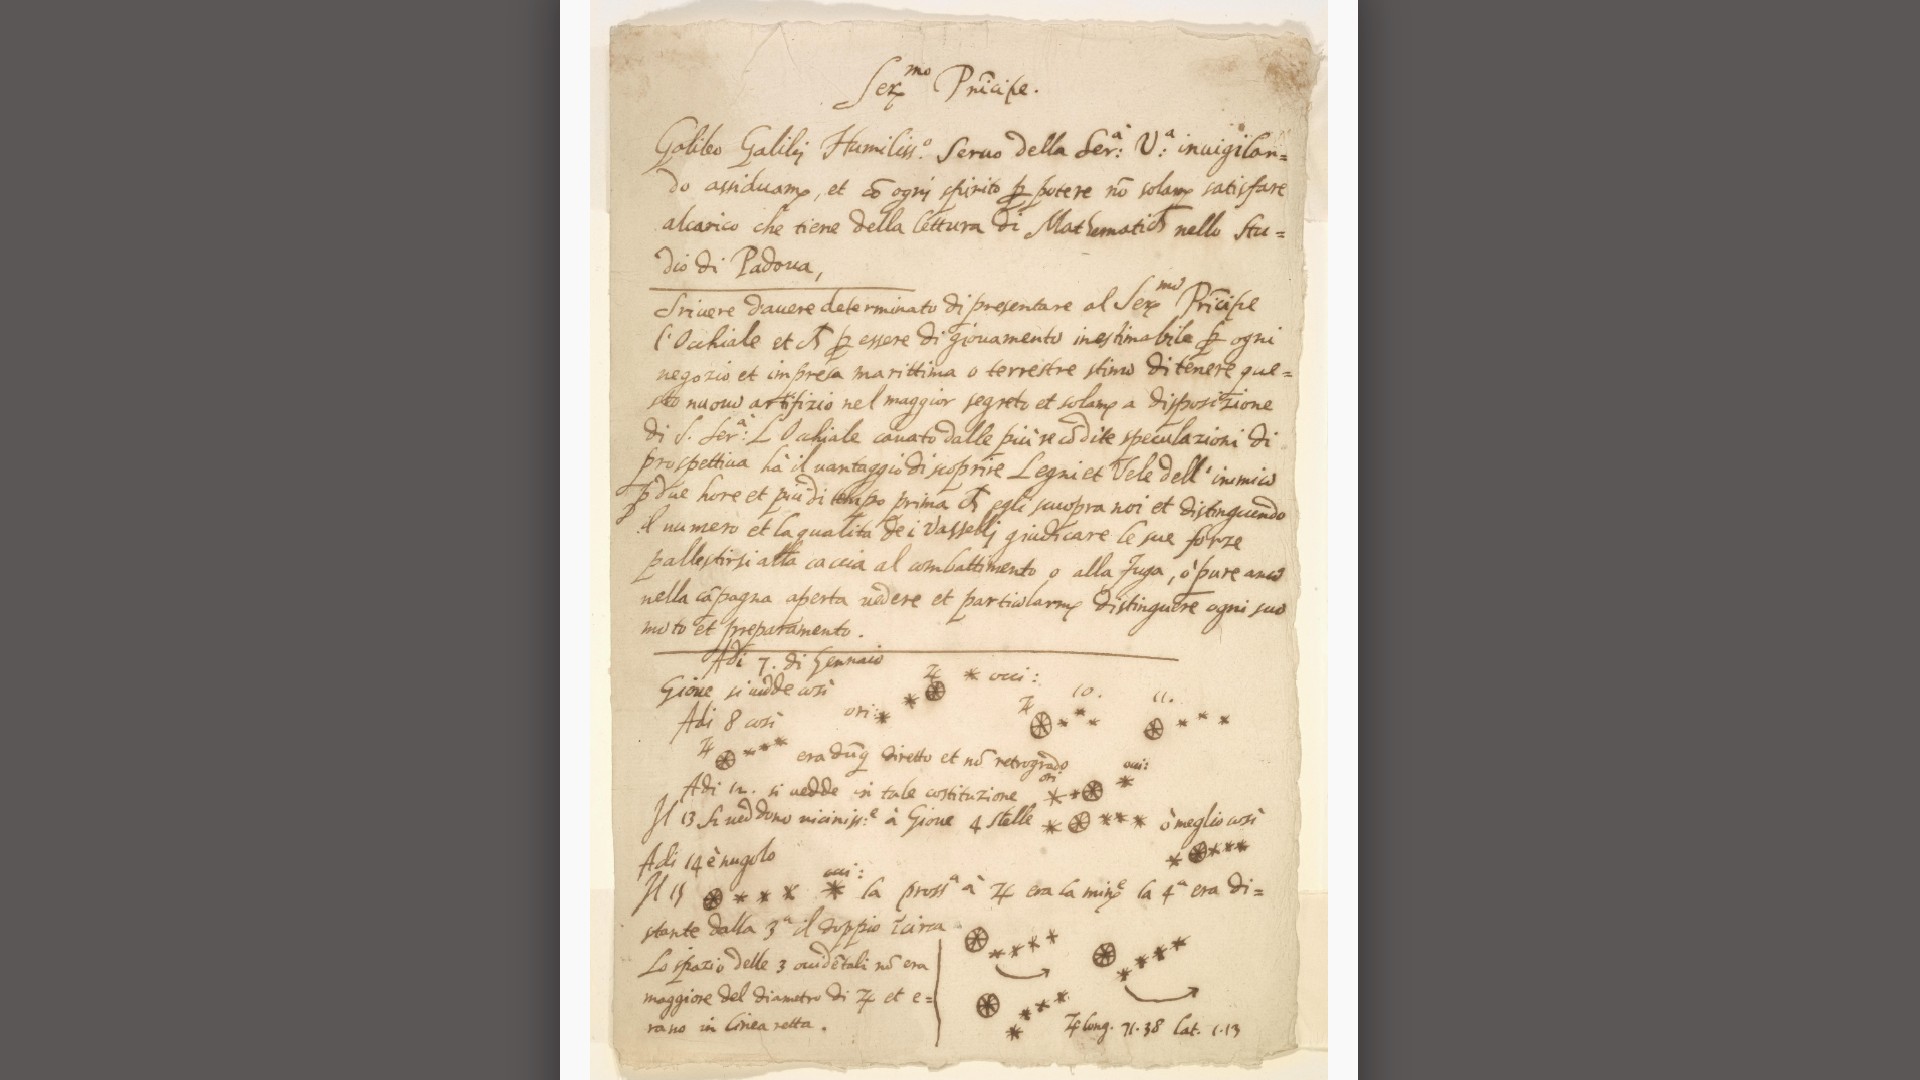 Ser.mo Prīcipe.
Galileo Galilej Humiliss.o Seruo della Ser:a V:a inuigilan=
do assiduam.e, et cō ogni spirito p potere nō solam.e satisfare
alcarico che tiene della lettura di Mathematich nello Stu=
dio di Padoua,
Scriuere d'auere determinato di presentare al Ser.mo Prīcipe
l'Occhiale et ch p essere di giouamento inestimabile p ogni
negozio et impresa marittima o terrestre stimo di tenere que=
sto nuouo artifizio nel maggior segreto et solam.e a disposizione
di S. Ser:a L'Occhiale cauato dalle più recōdite speculazioni di
prospettiua hà il uantaggio di scoprire Legni et Vele dell' inimico
p due hore et più di tempo prima ch egli scuopra noi et distinguendo
il numero et la qualità dei Vasselli giudicare le sue forze
pallestirsi alla caccia al combattimento o alla fuga, ò pure anco
nella cāpagna aperta uedere et particolarm.e distinguere ogni suo
moto et preparamento.
Adi 7. di Gennaio
Gioue si uedde così ♃ occi:
Adi 8 così ori: ♃ 10. 11.
♃ era dūq diretto et nō retrogrado
Adi 12. si uedde in tale costituzione ori occi:
Il 13 si ueddono uiciniss:e à Gioue 4 stelle ò meglio così
Adi 14 è nugolo
Il 15 occi: la pross.a à ♃ era la min.e la 4.a era di=
stante dalla 3.a il doppio īcirca
Lo spazio delle 3 occidētali nō era
maggiore del diametro di ♃ et e=
rano in linea retta.
♃ long. 71.38 lat. 1.13